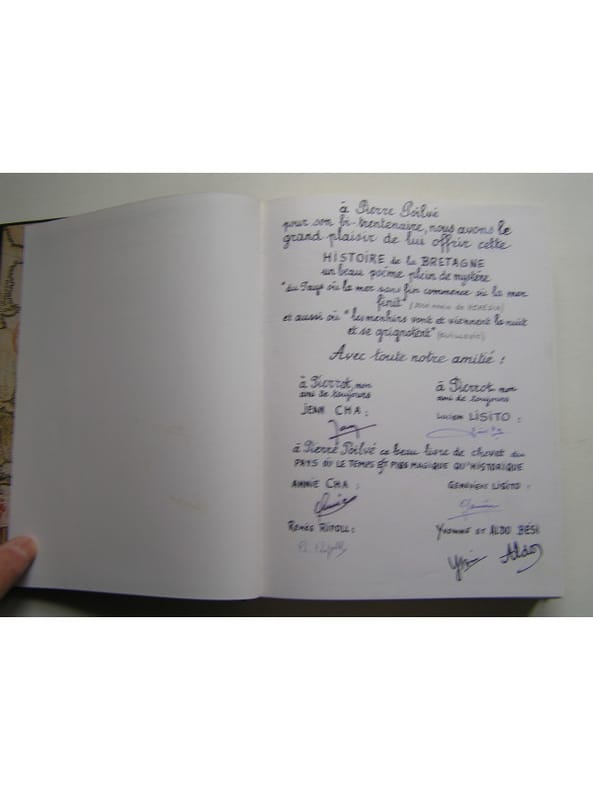 à Pierre Poilvé
pour son bi-trentenaire, nous avons le
grand plaisir de lui offrir cette
HISTOIRE de la BRETAGNE
un beau poème plein de mystère
"du Pays où la mer sans fin commence où la mer
finit" (José Maria de HEREDIA)
et aussi où "les menhirs vont et viennent la nuit
et se grignotent" (GUILLEVIC)
Avec toute notre amitié !
à Pierrot, mon
ami de toujours
JEAN CHA :
Jean
à Pierrot mon
ami de toujours
Lucien LISITO :
à Pierre Poilvé ce beau livre de chevet du
PAYS OÙ LE TEMPS EST PLUS MAGIQUE QU'HISTORIQUE
ANNIE CHA :
Annie
GENEVIÈVE LISITO :
RENÉE RIPOLL :
R. Ripoll
YVONNE ET ALDO BÉSI
Aldo